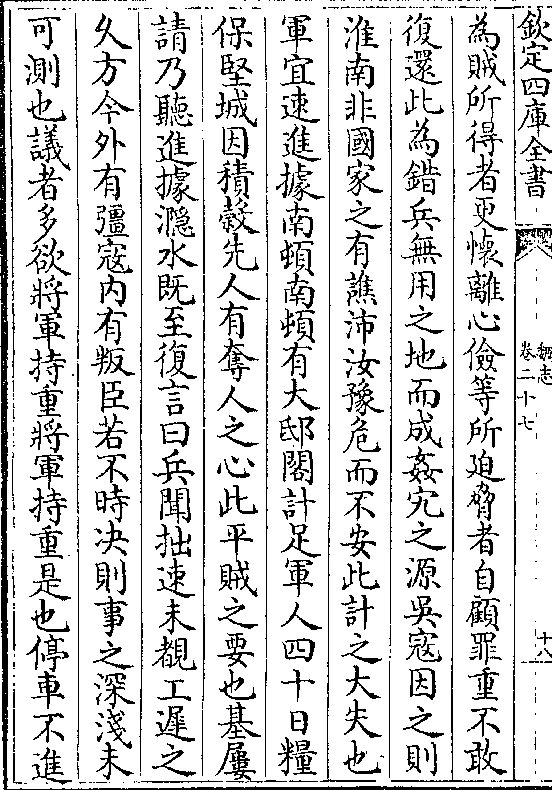 欽定四庫全書
魏志
卷二十七
十八
為賊所得者更懷離心儉等所迫脅者自顧罪重不敢
復還此為錯兵無用之地而成姦宄之源吳寇因之則
淮南非國家之有譙沛汝豫危而不安此計之大失也
軍宜速進據南頓南頓有大邸閣計足軍人四十日糧
保堅城因積穀先人有奪人之心此平賊之要也基屢
請乃聽進據㶏水既至復言曰兵聞拙速未覩工遲之
久方今外有彊寇内有叛臣若不時決則事之深淺未
可測也議者多欲將軍持重將軍持重是也停車不進